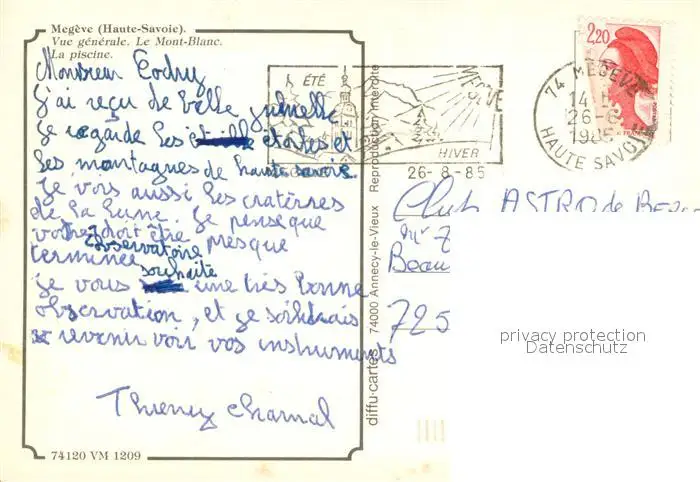 Megève (Haute-Savoie).
Vue générale. Le Mont-Blanc.
La piscine.
Monsieur
J'ai reçu de belle jumelle
je regarde les étoiles et
les montagnes de haute savoie.
Je vois aussi les cratères
de la lune. Je pense que
votre observatoire doit être presque
terminée
je vous souhaite une très bonne
observation, et je
revenir voir vos instruments
Thierry
74120 VM 1209
diffu-cartes 74000 Annecy-le-Vieux Reproduction interdite
ÉTÉ
HIVER
26-8-85
74 MEGEVE
1985
HAUTE SAVOIE
2,20
Club ASTRO de
Beau
725
privacy protection
Datenschutz